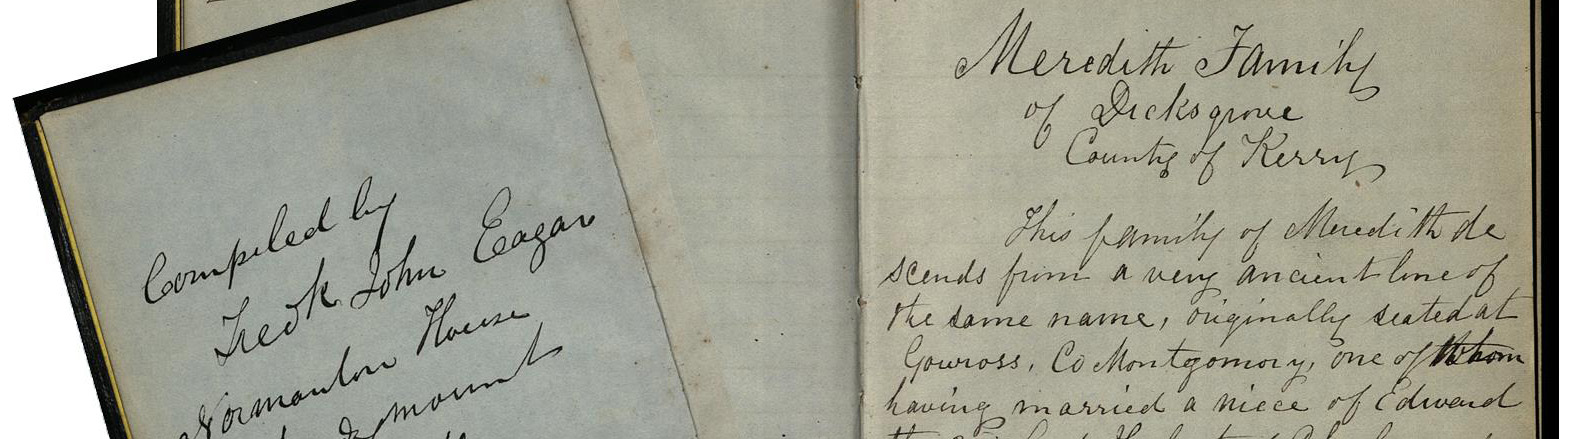 Compiled by
Fredk John Eagar
Normanton House
mount
Meredith Family
of Dicksgrove
County of Kerry
This family of Meredith de
scends from a very ancient line of
the same name, originally seated at
Gowross, Co Montgomory, one of whom
having married a niece of Edward